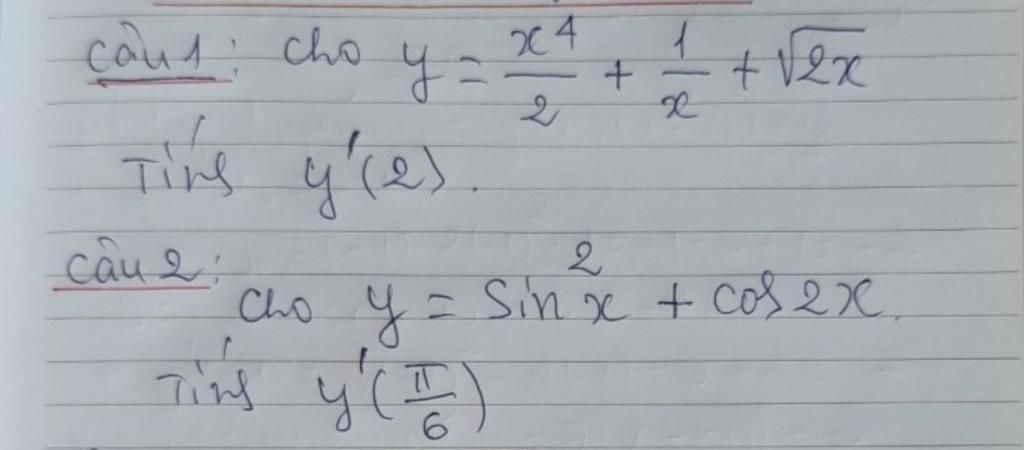 Câu 1: Cho y = x⁴/2 + 1/x + √2x
Tính y'(2).
Câu 2:
Cho y = Sin²x + cos2x.
Tính y'(π/6)